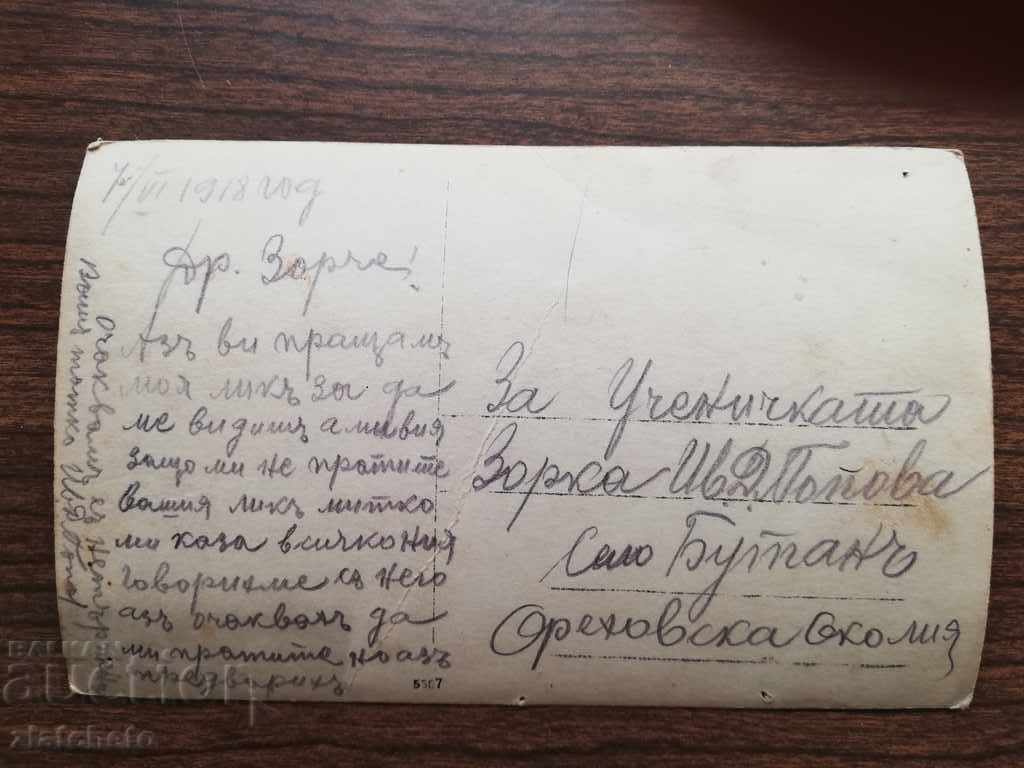 7/VI 1918 год
Др. Зорче!
Азъ ви пращамъ
моя ликъ за да
ме видишъ а ми вия
защо ми не пратите
вашия ликъ митко
ми каза всичко ния
говорихме съ него
азъ очаквахъ да
ми пратите но азъ
предварихъ
Очаквамъ съ нетърп
Вашия татко
За Ученичката
Зорка Ив Д Попова
Село Бутанъ
Ореховска Околия
5567
auction
zlatcheto